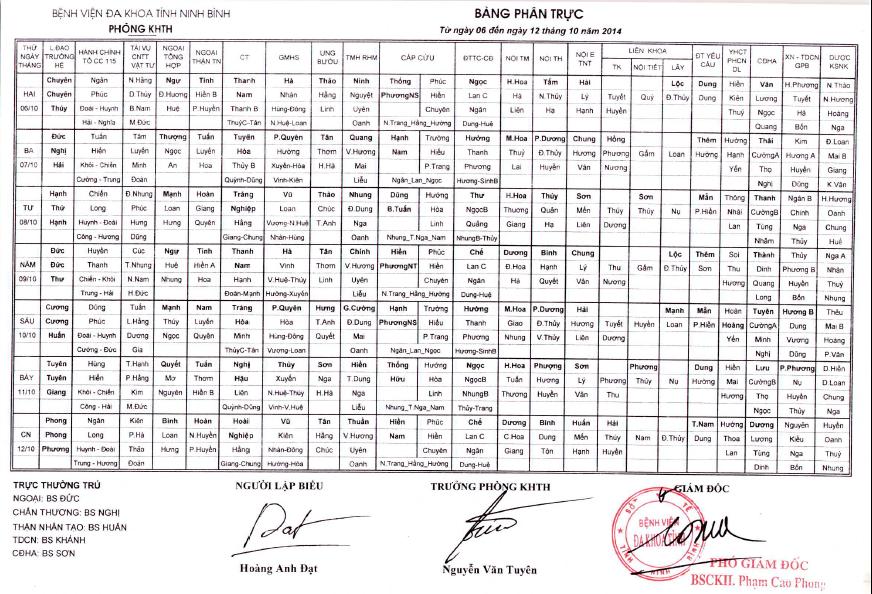 BỆNH VIỆN ĐA KHOA TỈNH NINH BÌNH
PHÒNG KHTH
BẢNG PHÂN TRỰC
Từ ngày 06 đến ngày 12 tháng 10 năm 2014
THỨ NGÀY THÁNG | L.ĐẠO TRƯỞNG HỆ | HÀNH CHÍNH TỔ CC 115 | TÀI VỤ CNTT VẬT TƯ | NGOẠI TỔNG HỢP | NGOẠI THẬN TN | CT | GMHS | UNG BƯỚU | TMH RHM | CẤP CỨU | ĐTTC-CĐ | NỘI TM | NỘI TH | NỘI E TNT | LIÊN KHOA | ĐT YÊU CẦU | YHCT PHCN DL | CĐHA | XN - TDCN GPB | DƯỢC KSNK
TK | NỘI TIẾT | LÂY
Chuyên Ngân N.Hằng Ngự Tình Thanh Hà Thảo Ninh Thống Phúc Ngọc H.Hoa Tấm Hải Lộc Dung Hiền Vân H.Phượng N.Thảo
HAI Chuyên Phúc D.Thúy Đ.Hương Hiền B Nam Nhân Hằng Nguyệt PhươngNS Hiếu Lan C Hà N.Thủy Lý Tuyết Quý Đ.Thủy Dung Kiên Lương Tuyết N.Hương
06/10 Thủy Đoài - Huynh B.Nam Huệ P.Huyền Thanh B Hùng-Đông Linh Uyên Chuyên Ngân Liên Hạ Hạnh Huyền Thuý Ngọc Hà Hoàng
Hải - Nghĩa M.Đức ThuýC-Tần N.Huệ-Loan Oanh N.Trang_Hằng_Hương Dung-Huê Quang Bốn Nga
Đức Tuân Tâm Thượng Tuấn Tuyên P.Quyên Tân Quang Hạnh Trường Hường M.Hoa P.Dương Chung Thêm Hường Thái Kim Đ.Loan
BA Nghị Hiền Luyến Ngọc Luyến Hòa Hương Thơm Hằng Nam Hiếu Thanh Thuý Đ.Thủy Hồng Phương Gấm Loan Hường Hạnh CườngA Hương A Mai B
07/10 Hải Khôi - Chiến Minh An Hoa Thủy B Xuyến-Hòa H.Hà Mai P.Trang Phương Lai Huyền Vân Nương Yến Thọ Huyền Giang
Cường - Trung Đoàn Quỳnh-Dũng Vinh-Kiên Liễu Ngân_Lan_Ngọc Hương-SinhB Nghị Dũng K.Vân
Hạnh Chiến Đ.Nhung Mạnh Hoàn Tráng Vũ Thảo Nhung Dũng Hương Thư H.Hoa Thúy Sơn Sơn Mẫn Thông Thanh Ngân B H.Hương
TƯ Thứ Long Phúc Loan Giang Nghiệp Loan Chúc Đ.Dung B.Tuấn Hòa NgọcB Thương Quân Mến Thúy Thúy Nụ P.Hiền Nhài CườngB Chinh Oanh
08/10 Hạnh Huynh - Đoài Hưng Hưng Quyên Hằng Vương-N.Huệ T.Anh Nga Linh Quảng Giang Hà Liên Dương Lan Tùng Nga Chung
Công - Hương Dũng Giang-Chung Nhân-Hùng Oanh Nhung_T.Nga_Nam NhungB-Thủy Nhâm Thúy Huế
Đức Huyền Cúc Ngự Tình Thanh Hà Tân Chính Hiền Phúc Chế Dương Bình Chung Lộc Thêm Soi Thành Thủy Nga A
NĂM Đức Thanh T.Nhung Huệ Hiền A Nam Vinh Thơm V.Hương PhươngNT Hiếu Lan C Đ.Hoa Hạnh Lý Thu Gấm Đ.Thủy Sơn Thu Dinh Phương B Nhận
09/10 Thư Chiến - Khôi N.Nam Nhung Hoa Hạnh V.Huệ-Thúy Linh Uyên Chuyên Ngân Hà Quyết Vân Nương Hương Quang Huyền Thuý
Trung - Hải H.Đức Đoàn-Mạnh Hường-Xuyến Liễu N.Trang_Hằng_Hường Dung-Huê Long Bốn Nhung
Cương Dũng Tuấn Mạnh Nam Tráng P.Quyên Hưng G.Cường Hạnh Trường Hường M.Hoa P.Dương Hải Mạnh Mẫn Hoàn Tuyên Hương B Thêu
SÁU Cương Phúc L.Hằng Thúy Luyến Hòa Hòa T.Anh Đ.Dung PhươngNS Hiếu Thanh Giao Đ.Thủy Hương Tuyết Huyền Loan P.Hiền Hoàng CườngA Dung Mai B
10/10 Huấn Đoài - Huynh Dương Ngọc Quyên Minh Hùng-Đông Quyết Mai P.Trang Phương Nhung V.Thủy Liên Dương Yến Minh Vương Hoàng
Cường - Đức Gia ThủyC-Tần Vương-Loan Oanh Ngân_Lan_Ngọc Hương-SinhB Nghị Dũng P.Vân
Tuyên Hùng T.Hạnh Quyết Tuấn Nghị Thủy Sơn Hiền Thống Hường Ngọc H.Hoa Phượng Sơn Phương Dung Hiền Lưu P.Phương D.Hiền
BẢY Tuyên Hiền P.Hằng Mơ Thơm Hậu Xuyến Nga T.Dung Hữu Hòa NgọcB Tuấn Hương Lý Phương Thúy Nụ Hường Mai CườngB Nụ D.Loan
11/10 Giang Khôi - Chiến Kim Nguyên Hiền B Liên N.Huệ-Thúy H.Hà Nga Linh NhungB Thương Huyền Vân Thu Hương Thọ Huyền Chung
Công - Hải M.Đức Quỳnh-Dũng Vinh-V.Huệ Liễu Nhung_T.Nga_Nam Thủy-Trang Ngọc Thúy Nga
Phong Ngân Kiên Bình Hoàn Hoài Vũ Tân Thuần Hiền Phúc Chế Dương Bình Huấn Hải T.Nam Hường Dương Nguyên Huyền
CN Phong Long P.Hà Loan N.Huyền Nghiệp Kiên Hằng V.Hương Nam Hiếu Lan C C.Hoa Dung Mến Thúy Nam Đ.Thủy Dung Thoa Lương Kiều Oanh
12/10 Phương Huynh - Đoài Thảo Hưng P.Huyền Hằng Nhân-Đông Chúc Uyên Chuyên Ngân Giang Tôn Hạnh Huyền Lan Tùng Nga Thuý
Trung - Hương Đoàn Giang-Chung Hường-Hòa Oanh N.Trang_Hằng_Hường Dung-Huê Dinh Bốn Nhung
TRỰC THƯỜNG TRÚ
NGOẠI: BS ĐỨC
CHẤN THƯƠNG: BS NGHỊ
THẬN NHÂN TẠO: BS HUẤN
TDCN: BS KHÁNH
CĐHA: BS SƠN
NGƯỜI LẬP BIỂU
Hoàng Anh Đạt
TRƯỞNG PHÒNG KHTH
Nguyễn Văn Tuyên
GIÁM ĐỐC
SỞ Y TẾ
BỆNH VIỆN
ĐA KHOA TỈNH
TỈNH NINH BÌNH
PHÓ GIÁM ĐỐC
BSCKII. Phạm Cao Phong